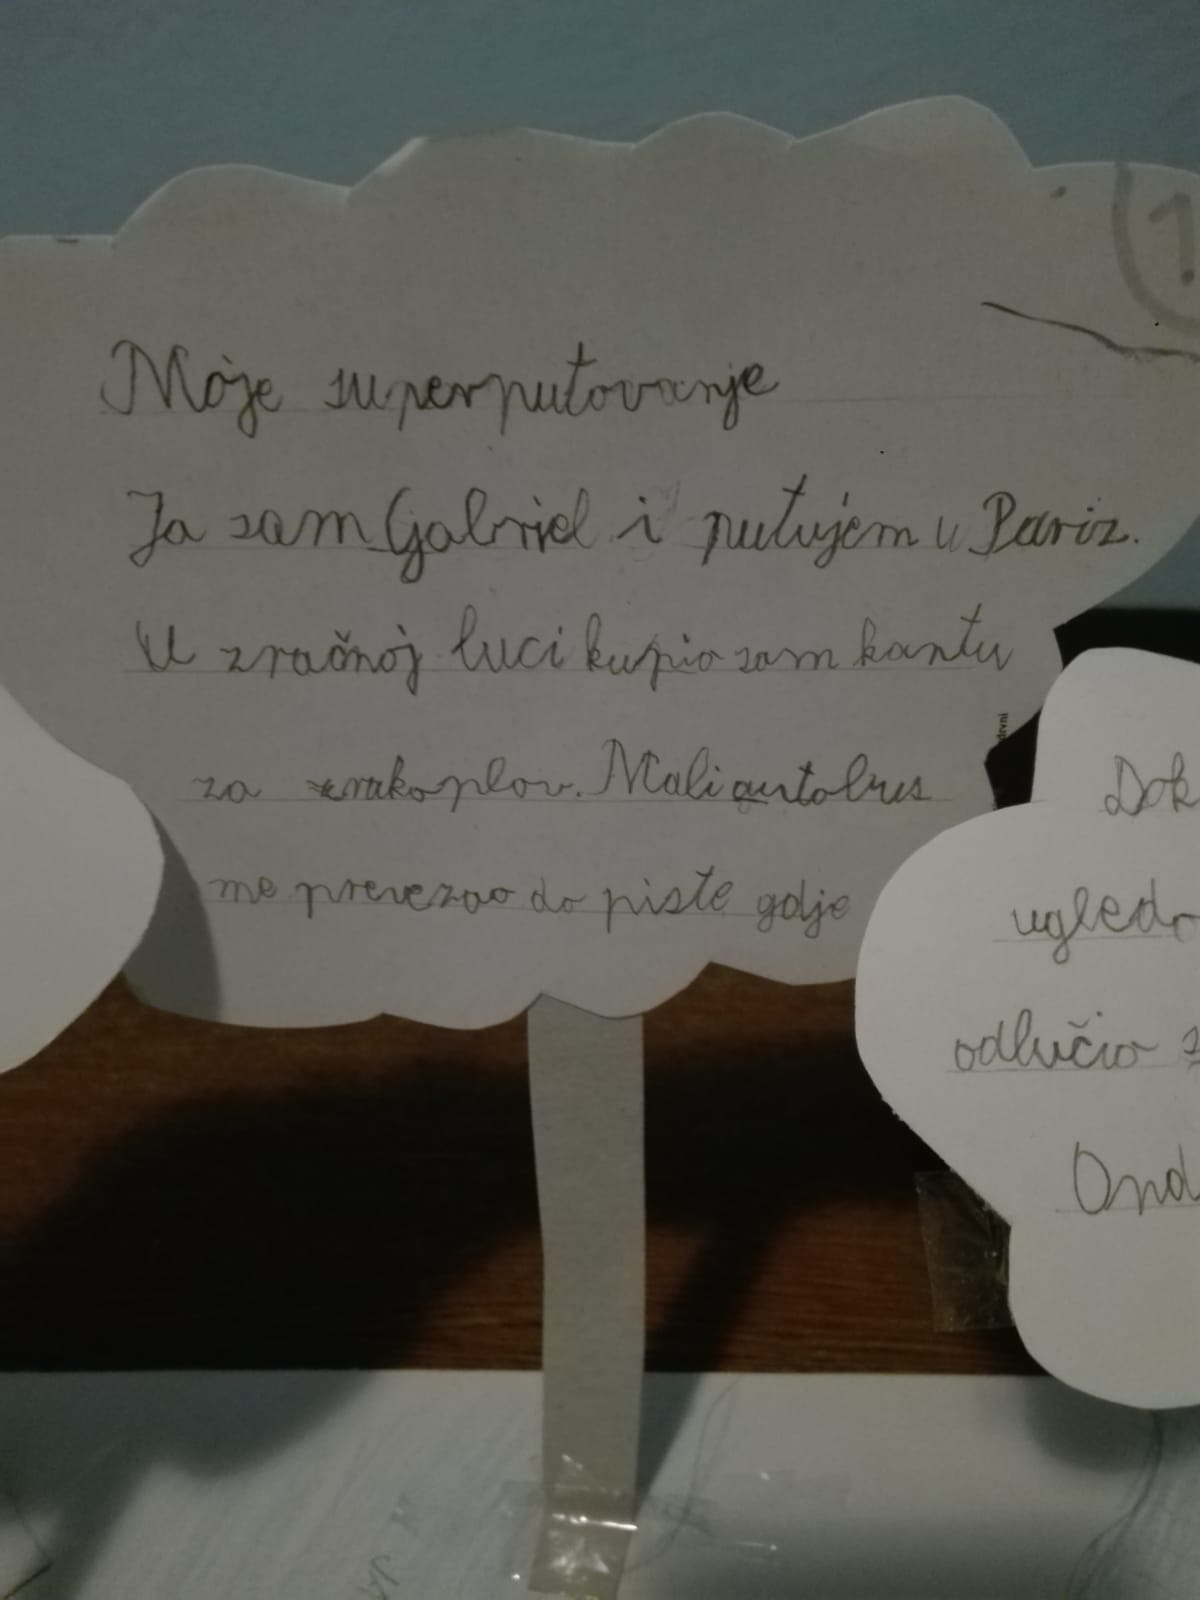 1
Moje superputovanje
Ja sam Gabriel i putujem u Pariz.
U zračnoj luci kupio sam kartu
za zrakoplov. Mali autobus
me prevezao do piste gdje
drvni
Dok
ugledo
odlučio
Ond